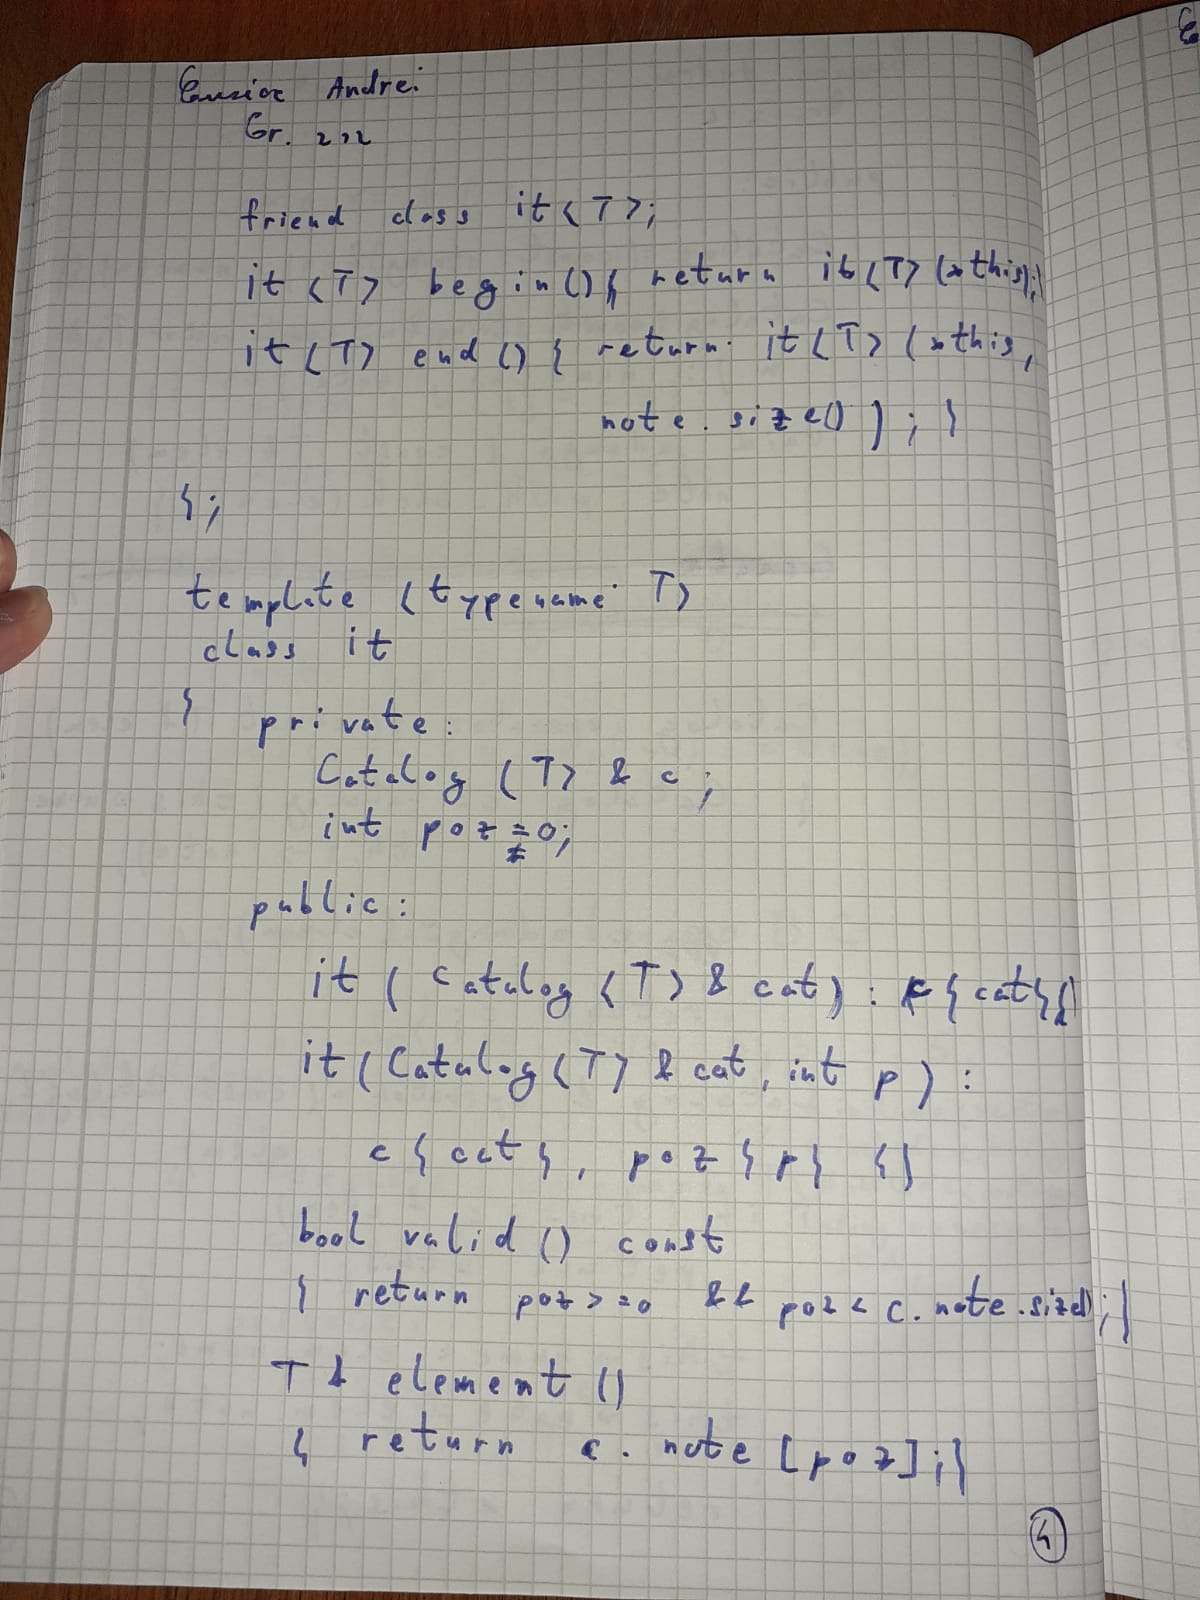 Andrei
Gr. 222
friend class it<T>;
it <T> begin(){ return it<T>(*this);}
it <T> end() { return it<T> (*this,
note.size() ) ; }
};
template <typename T>
class it
{ private:
Catalog <T> & c ;
int poz = 0;
public :
it ( Catalog <T> & cat) : c { cat}{}
it ( Catalog <T> & cat, int p ) :
c { cat }, poz { p } {}
bool valid () const
{ return poz >= 0 && poz < c. note.size();}
T & element ()
{ return c. note [poz];}
4